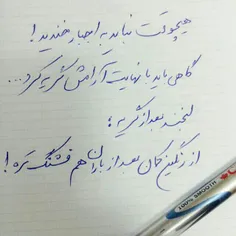 هیچوقت نباید به اجبار خندید !
گاهی باید با نهایت آرامش گریه کرد ...
لبخند بعد از گریه ؛
از رنگین کمان بعد از باران هم قشنگ تره !